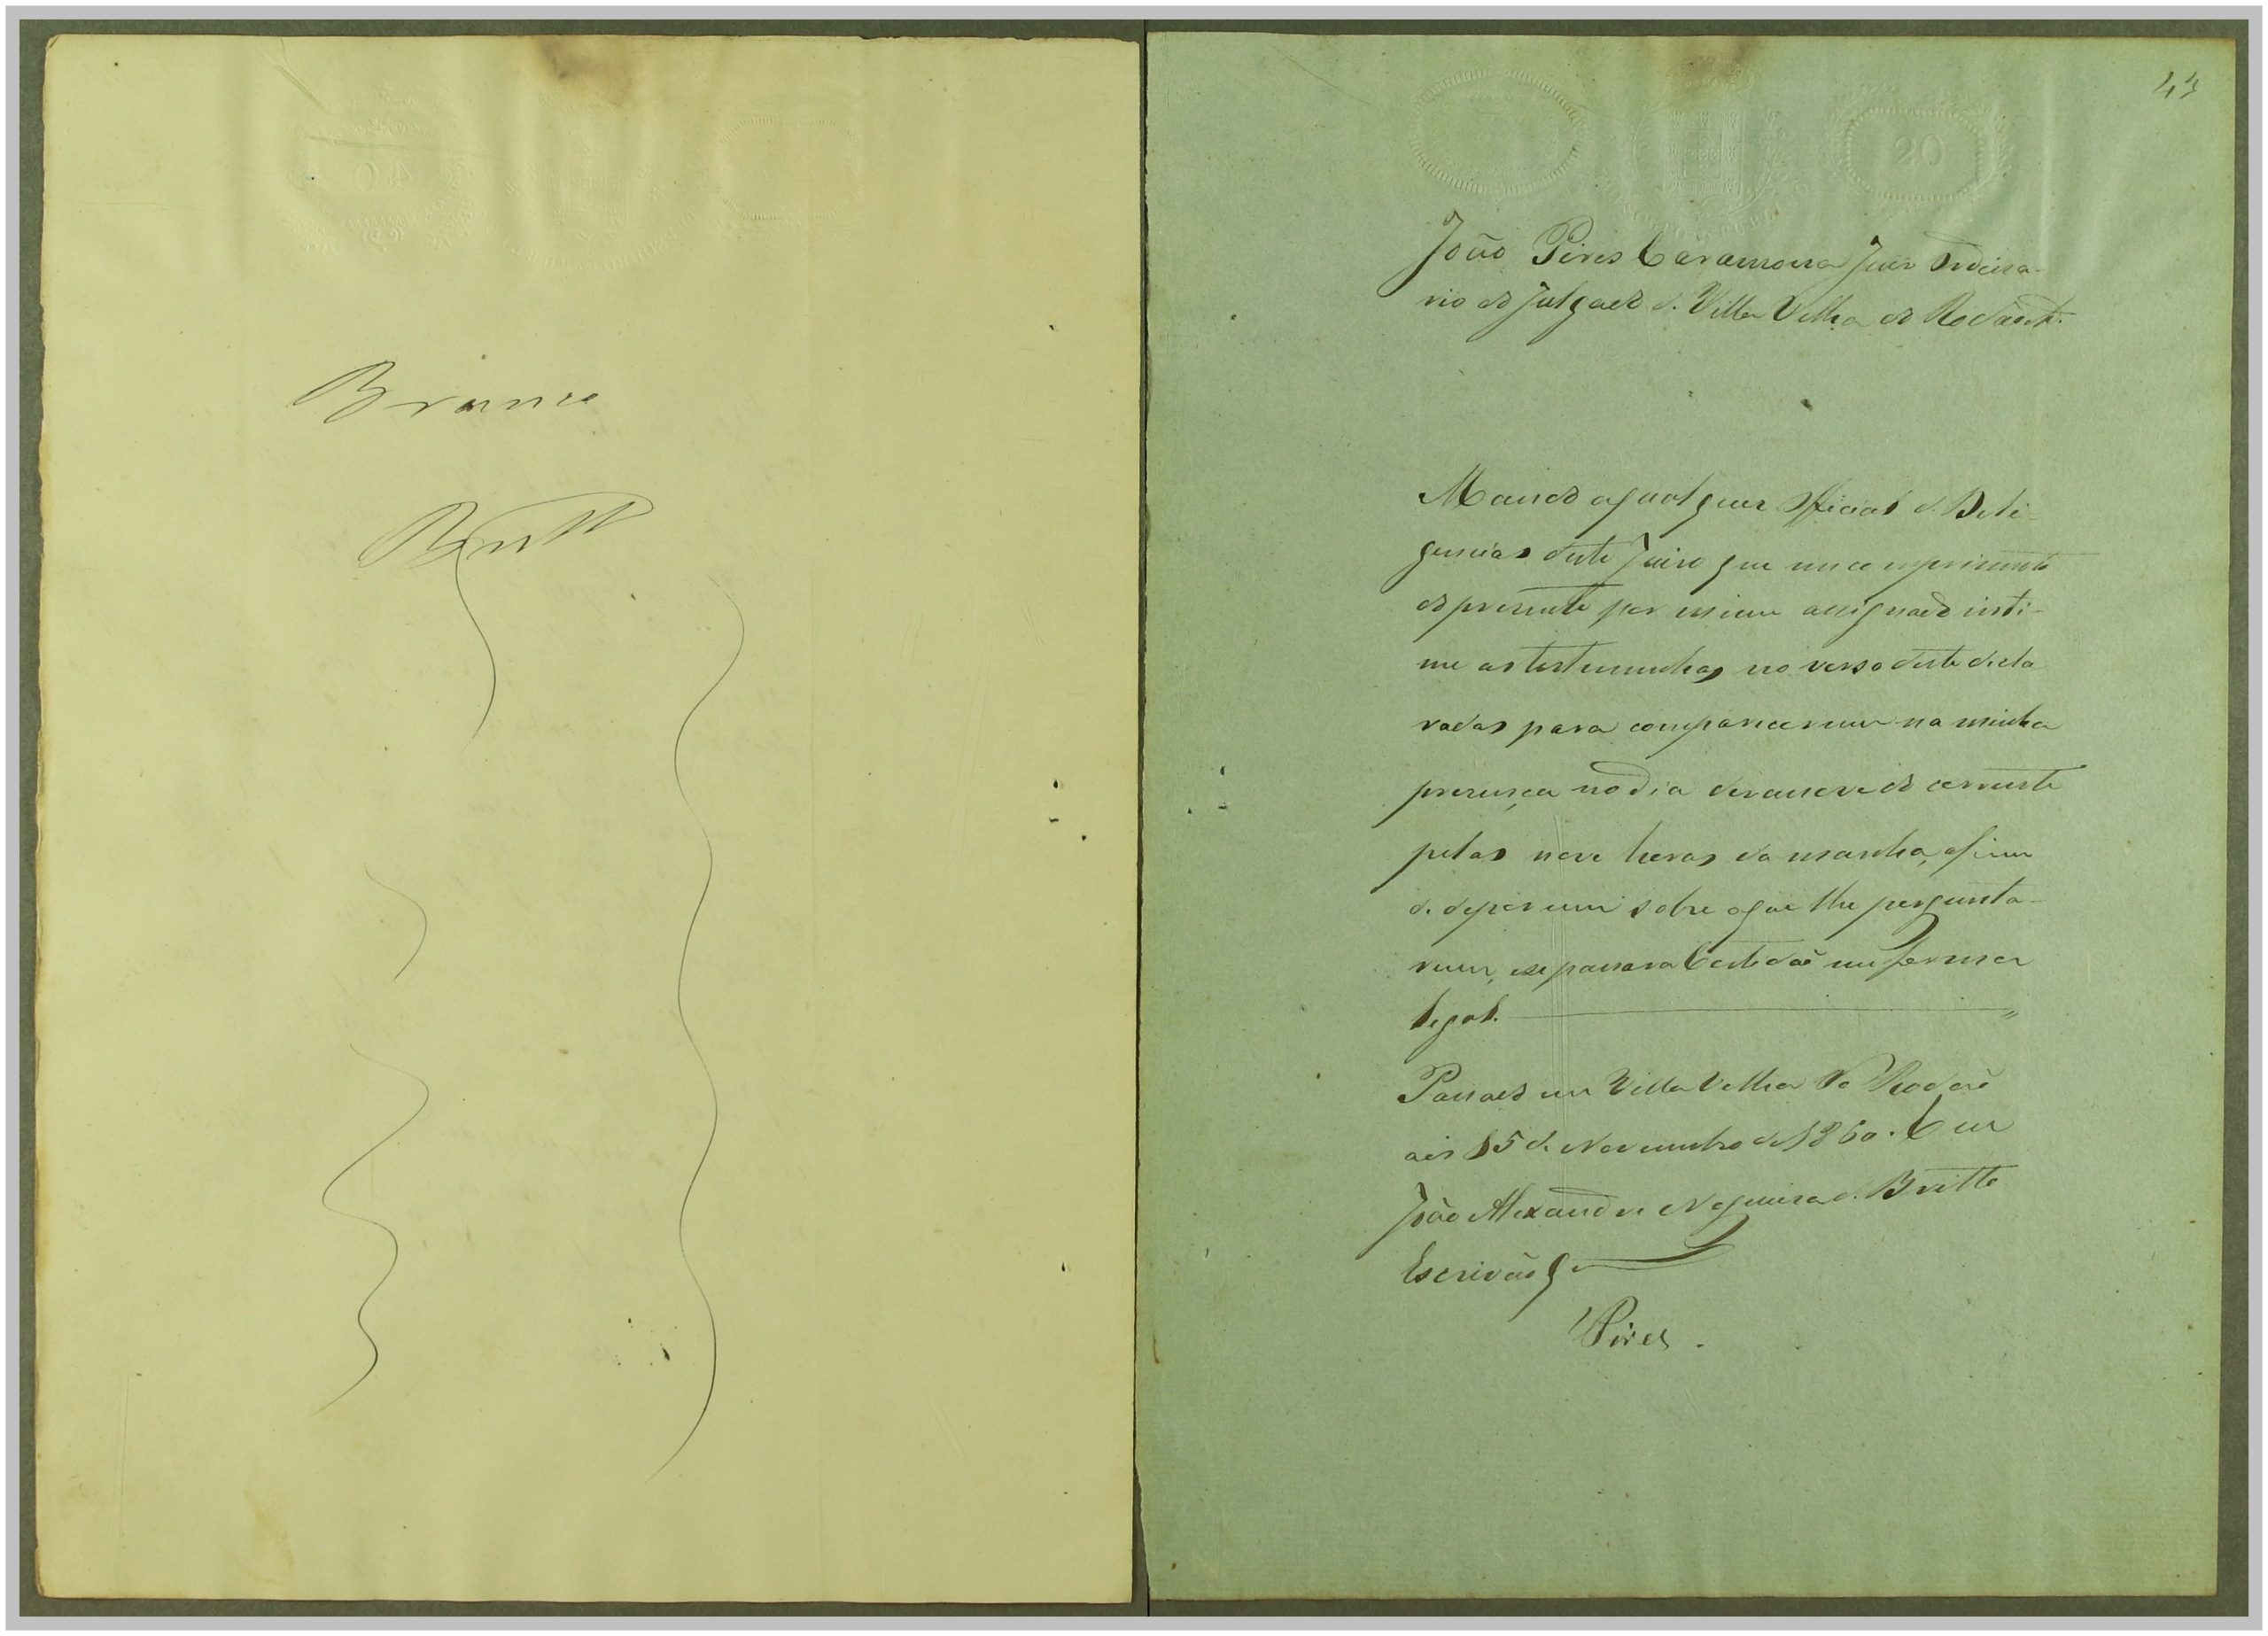 Branco
Britto
43
20
João Pires Caramona Juiz Ordina-
rio do Julgado de Villa Velha do Rodão etc.
Mando a qualquer Official de Deli-
gencias deste Juizo que em comprimento
do presente por mim assignado inti-
me as testemunhas no verso deste decla
radas para comparecerem na minha
presença no dia dezanove do corrente
pelas nove horas da manha, afim
de deporem sobre o que lhe pergunta-
rem, e se passara Certidão em forma
legal.
Passado em Villa Velha de Rodão
aos 15 de Novembro de 1860. E eu
João Alexandre Nogueira de Britto
Escrivão
Pires.